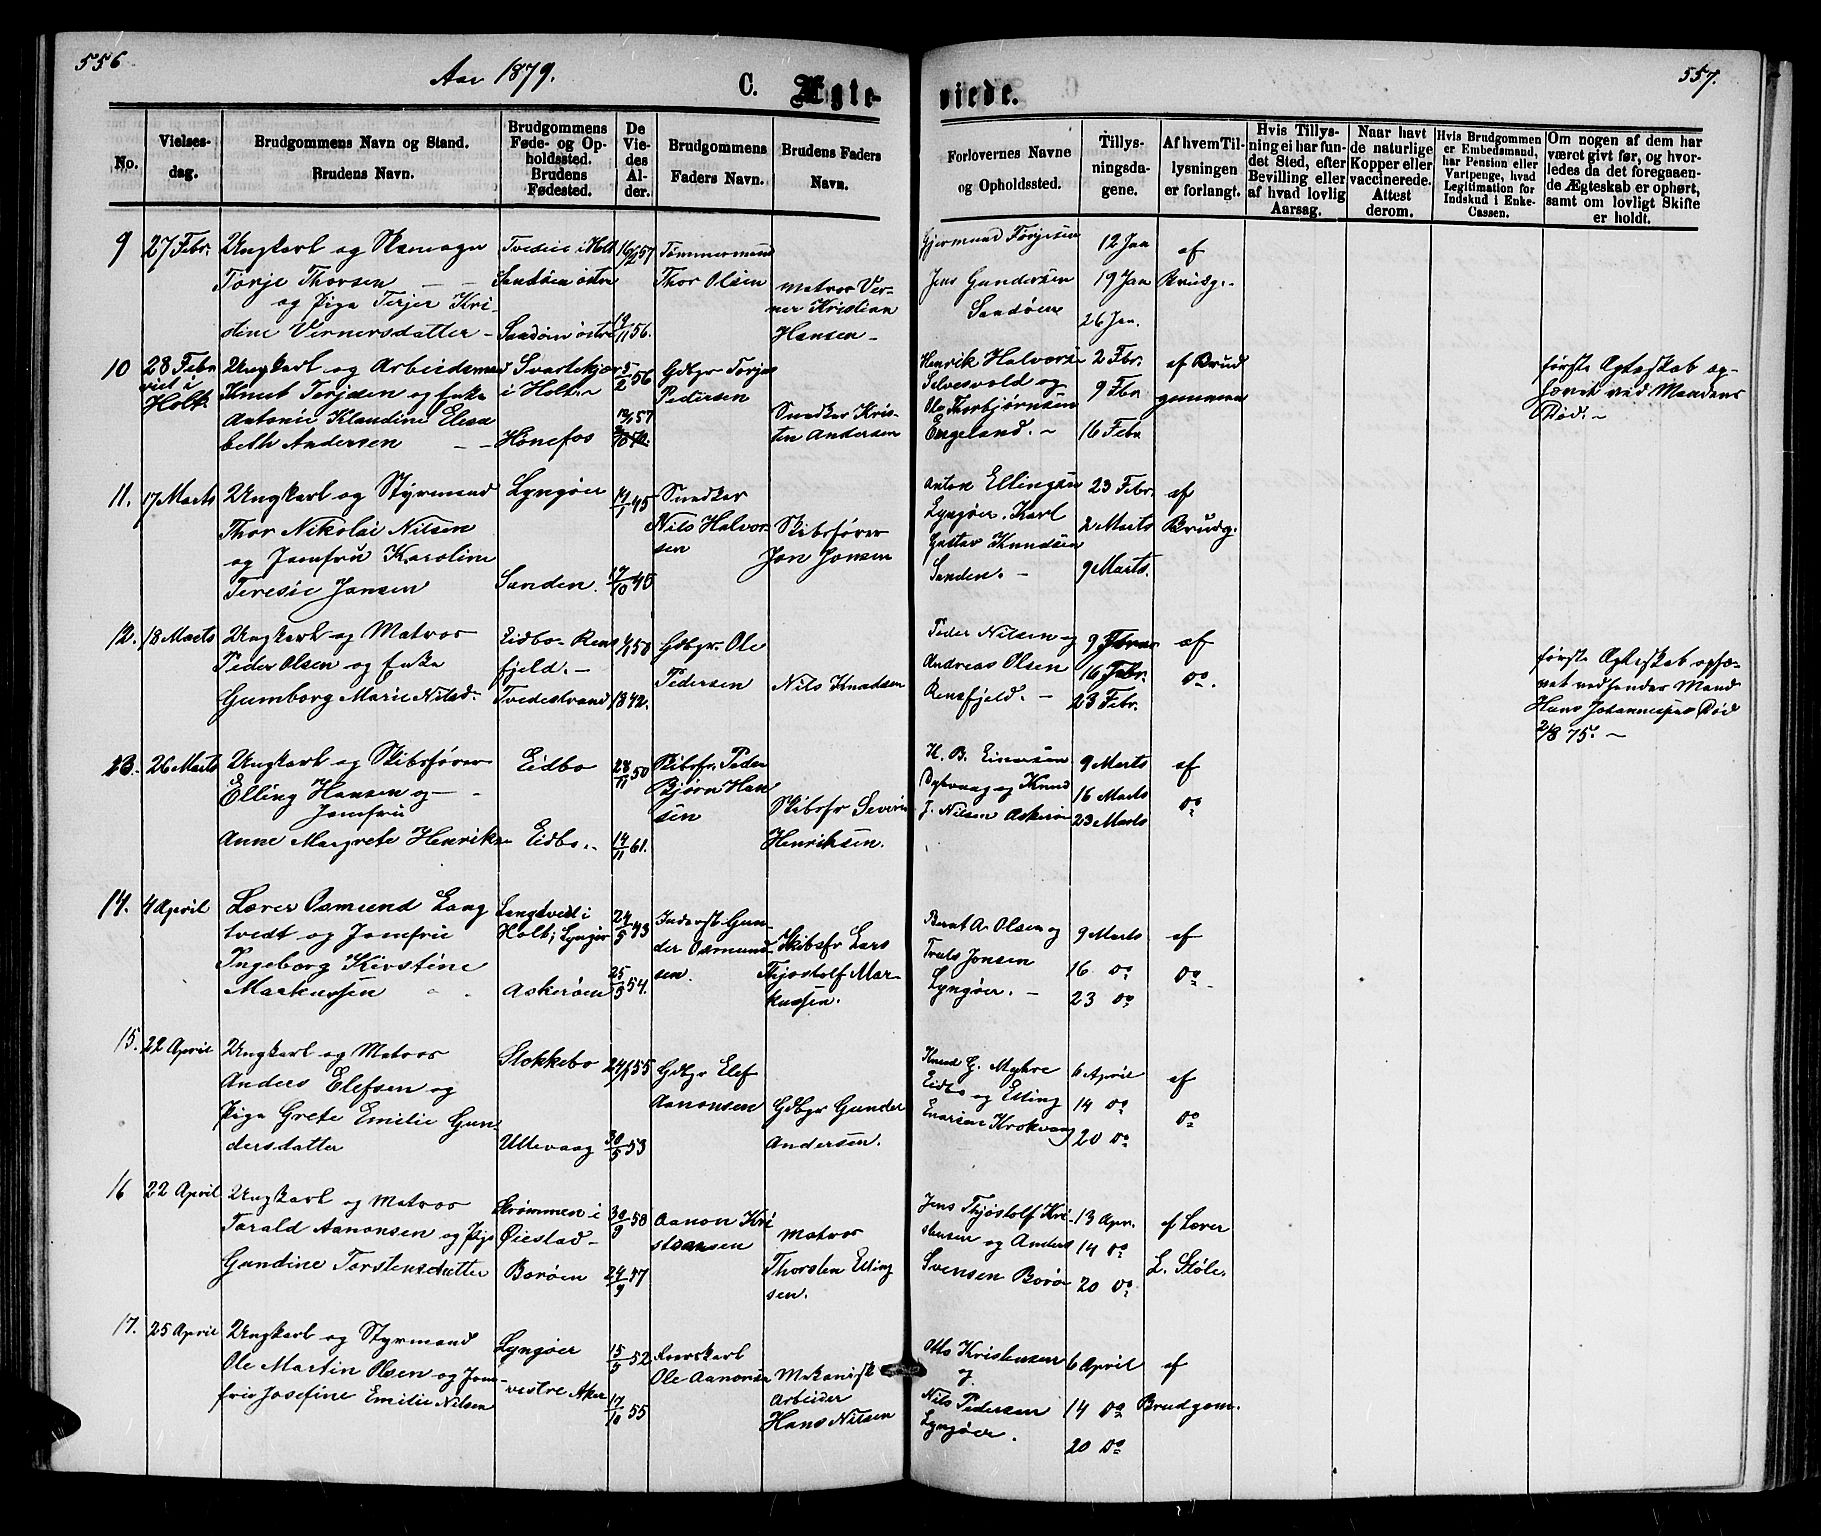 556
Aar 1879.
C. Ægte-
viede.
557.
No.
Vielses-
dag.
Brudgommens Navn og Stand.
Brudens Navn.
Brudgommens
Føde- og Op-
holdssted.
Brudens
Fødested.
De
Vie-
des
Al-
der.
Brudgommens
Faders Navn.
Brudens Faders
Navn.
Forlovernes Navne
og Opholdssted.
Tillys-
ningsda-
gene.
Af hvem Til-
lysningen
er forlangt.
Hvis Tillys-
ning ei har fun-
det Sted, efter
Bevilling eller
af hvad lovlig
Aarsag.
Naar havt
de naturlige
Kopper eller
vaccinerede.
Attest
derom.
Hvis Brudgommen
er Embedsmand,
har Pension eller
Vartpenge, hvad
Legitimation for
Indskud i Enke-
Cassen.
Om nogen af dem har
været givt før, og hvor-
ledes da det foregaaen-
de Ægteskab er ophørt,
samt om lovligt Skifte
er holdt.
9
27 Febr.
Ungkarl og
Torje Thorsen
og Pige Terjer Kri-
stine Vernersdatter
i Holt
Sandøen østre
Sandøen østre
57
19/11 56.
Tømmermand
Thor Olsen
Matros Ver-
ner Kristian
Hansen
Gjermund Torjesen
Jens Gundersen
Sandøen
12 Jan
19 Jan
26 Jan.
af
Brudg.
10
28 Febr
viet i
Holt
Ungkarl og Arbeidsmand
Knut Terjesen og Enke
Antonie Klaudine Elesa
beth Andersen
Svartekjær
i Holt
Hønefos
5/2 56
57
Gdbgr Torjus
Pedersen
Snedker Kris-
ten Andersen
Henrik Halvorsen
Selvesvold og
Ole Thorbjørnsen
Engeland.
2 Fbr.
9 Fbr
16 Febr
af Brud
gommen
første Ægteskab op-
hævet ved Mandens
Død.
11.
17 Marts
Ungkarl og Styrmand
Thor Nikolai Nilsen
og Jomfru Karoline
Teresie Jansen
Lyngøer
Sanden.
45
17/10 45
Snedker
Nils Halvor-
sen
Skibsfører
Jon Jonsen
Anton Ellingsen
Lyngøer. Karl
Gustav Knudsen
Sanden.
23 Febr.
2 Marts
9 Marts.
af
Brudg.
12.
18 Marts
Ungkarl og Matros
Peder Olsen og Enke
Gumborg Marie Nilsd.
Eidbo Rens
fjeld.
Tvedestrand
50
1842.
Gdbgr. Ole
Pedersen
Nils Knudsen
Peder Nilsen og
Andreas Olsen
Rensfjeld.
9 Febr
16 Febr.
23 Febr.
af
Do.
første Ægteskab ophæ-
vet ved hendes Mand
Hans Johannessens Død
2/8 75.
13.
26 Marts
Ungkarl og Skibsfører
Elling Hansen og
Jomfru
Anne Margrete Henriks
Eidbo
Eidbo.
28/11 50
14/11 61.
Skibsfr. Peder
Bjørn Han
sen
Skibsfr Severin
Henriksen.
H. B. Einersen
Dybvaag og Knud
J. Nilsen Askerøen
9 Marts
16 Marts
23 Marts
af
Do
14.
4 April
Lærer Osmund Lang
tvedt og Jomfru
Ingeborg Kirstine
Markussen
Langtvedt i
Holt; Lyngør
Askerøen
24/5 43
25/3 54.
Inderst Gun-
der Osmund-
sen.
Skibsfr Lars
Thjostolf Mar-
kussen.
Bernt A. Olsen og
Truls Jonsen
Lyngøer.
9 Marts
16 Do
23 Do
af
Do
15.
22 April
Ungkarl og Matros
Anders Elefsen og
Pige Grete Emilie Gun
dersdatter
Stokkebo
Ullevaag
24/1 55
30/5 53
Gdbgr Elef
Aanonsen
Gdbgr Gunder
Andersen.
Knud G. Myhre
Eidbo og Elling
Enersen Krokvaag
6 April
14 Do
20 Do
af
Do
16
22 April
Ungkarl og Matros
Tarald Aanonsen og Pige
Gundine Torstensdatter
Strømmen i
Øiestad
Borøen
30/9 50
24/9 57
Aanon Kri
stiansen
Matros
Thorsten Elling
sen.
Jens Thjostolf Kri-
stensen og Anders
Svensen Borøe
13 Apr.
14 Do
20 Do
af Lærer
L. Støle.
17.
25 April
Ungkarl og Styrmand
Ole Martin Olsen og Jom-
fru Josefine Emilie Nilsen
Lyngøer
vestre Aker
15/5 52
17/10 55
Ole Aanonsen
Mekanisk
Arbeider
Hans Nilsen
Otto Kristensen
og
Nils Pedersen
Lyngøer.
6 April
14 Do
20 Do
af
Brudgom.